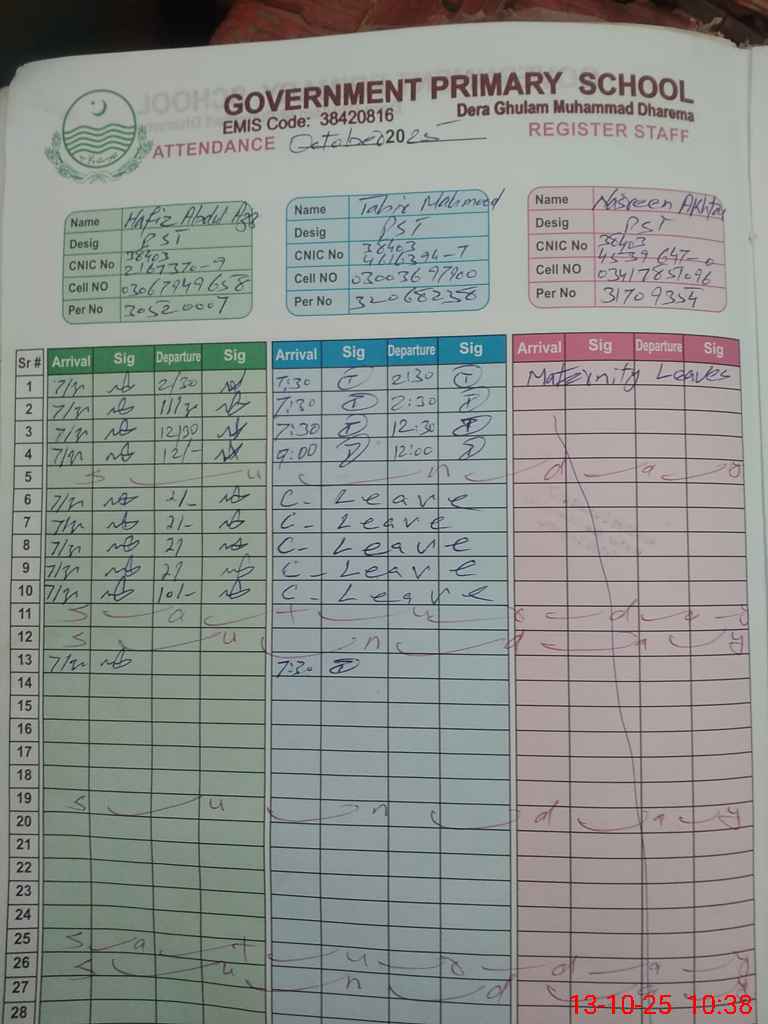 GOVERNMENT PRIMARY SCHOOL
EMIS Code: 38420816 Dera Ghulam Muhammad Dharema
ATTENDANCE October 2025 REGISTER STAFF
Name Hafiz Abdul
Desig PST
CNIC No 38403
2167370-9
Cell NO 03067949658
Per No 30520007
Name Tahir Mahmood
Desig PST
CNIC No 38403
4616394-7
Cell NO 03003697900
Per No 32068258
Name Nasreen Akhtar
Desig PST
CNIC No 38403
4539647-0
Cell NO 03417851096
Per No 31709354
Sr # Arrival Sig Departure Sig Arrival Sig Departure Sig Arrival Sig Departure Sig
1 2/30 7:30 T 2:30 T Maternity Leaves
2 7:30 T 2:30 T
3 12/30 7:30 T 12:30 T
4 12/- 9:00 T 12:00 T
5 S u n d a y
6 2/- C- Leave
7 2/- C- Leave
8 C- Leave
9 C- Leave
10 10/- C- Leave
11 S a t u r d a y
12 S u n d a y
13 7:30 T
14
15
16
17
18
19 S u n d a y
20
21
22
23
24
25 S a t u r d a y
26 S u n d a y
27
28
13-10-25 10:38